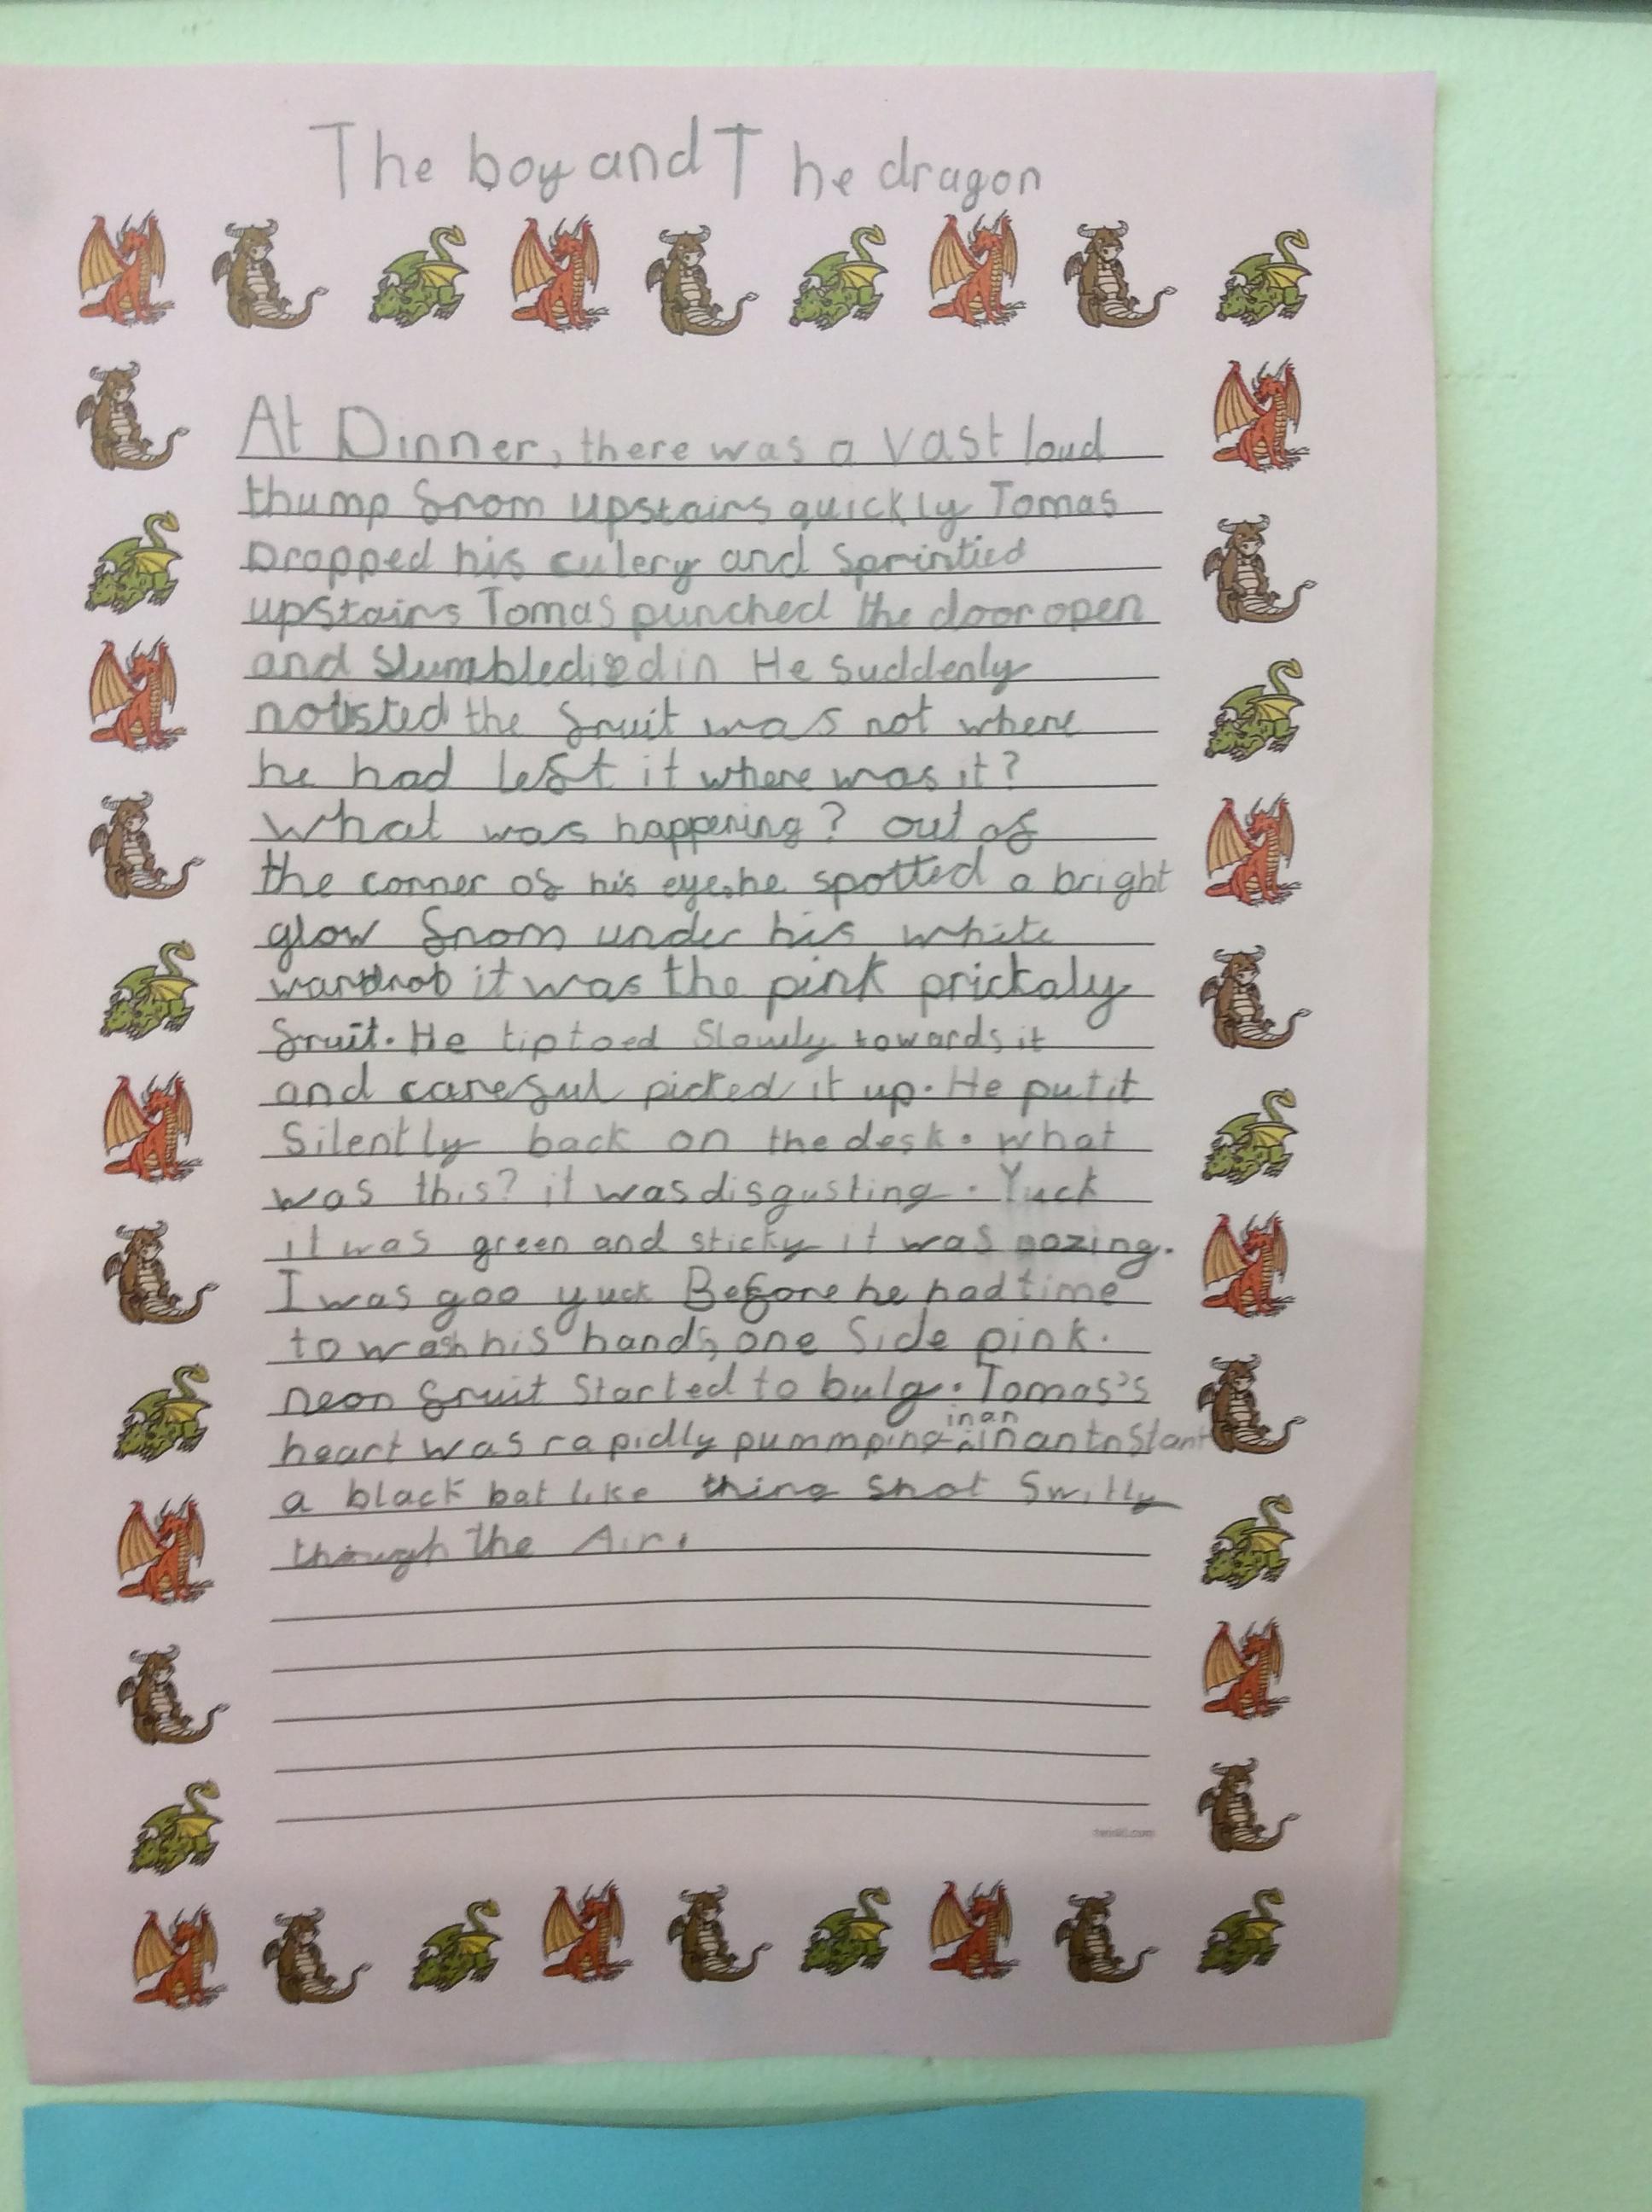 The boy and T he dragon
At Dinner, there was a vast loud
thump from upstairs quickly Tomas
Dropped his culery and Sprintied
upstairs Tomas punched the door open
and in He suddenly
the fruit was not where
he had left it where was it?
What was happening? out of
the corner of his eye, he spotted a bright
glow from under his white
it was the pink prickaly
fruit. He tiptoed Slowly towards it
and careful picked it up. He put it
Silently back on the desk. what
was this? it was disgusting. Yuck
it was green and sticky it was oozing.
I was goo yuck Before he had time
to wash his hands, one Side pink.
neon fruit Started to bulg. Tomas's
in an
heart was rapidly pummping in an inStant
a black bat like thing shot Swiftly
though the Air.
twinkl.com